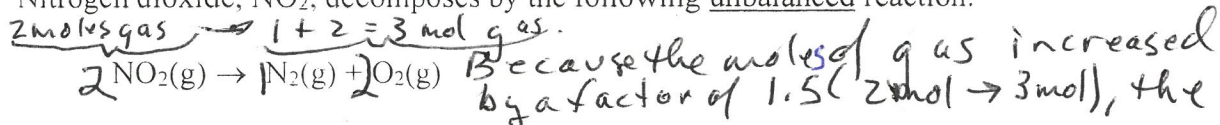 Nitrogen dioxide, NO₂, decomposes by the following unbalanced reaction:
2moles gas → 1 + 2 = 3 mol gas.
2 NO₂(g) → 1 N₂(g) + 2 O₂(g) Because the moles of gas increased
by a factor of 1.5 ( 2 mol → 3 mol), the